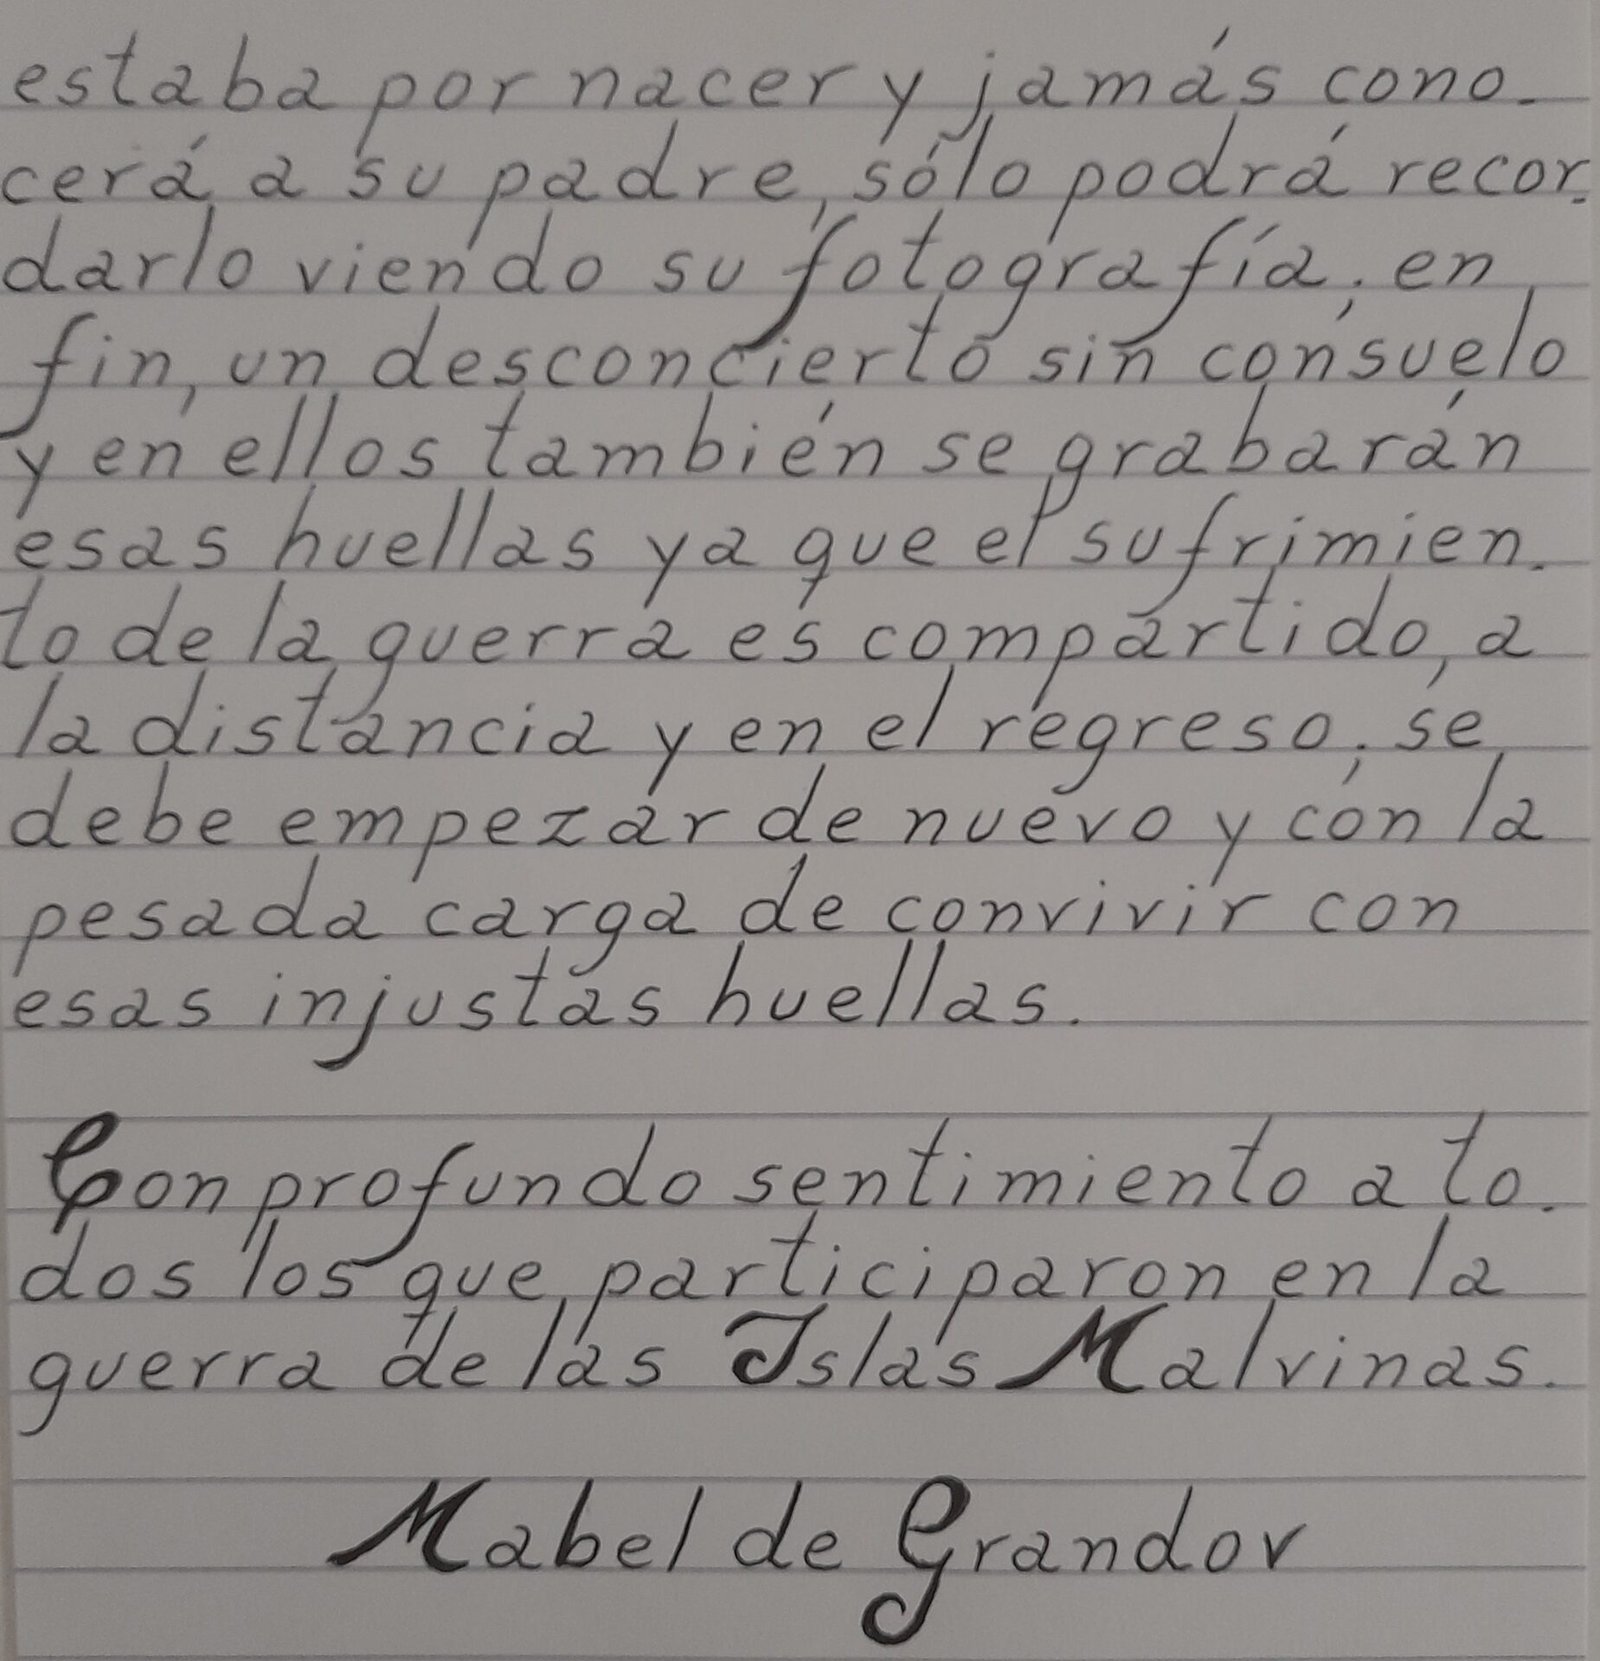 estaba por nacer y jamás cono-
cerá a su padre, sólo podrá recor-
darlo viendo su fotografía; en
fin, un desconcierto sin consuelo
y en ellos también se grabarán
esas huellas ya que el sufrimien-
to de la guerra es compartido, a
la distancia y en el regreso; se
debe empezar de nuevo y con la
pesada carga de convivir con
esas injustas huellas.
Con profundo sentimiento a to-
dos los que participaron en la
guerra de las Islas Malvinas.
Mabel de Grandov